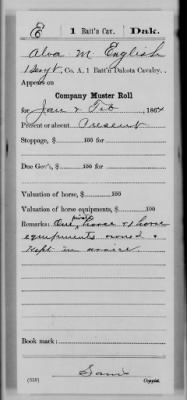 E 1 Batt'n Cav. Dak.
Alva M. English
Sergt., Co. A, 1 Batt'n Dakota Cavalry.
Appears on
Company Muster Roll
for Jan & Feb, 1864
Present or absent Present
Stoppage, $ 100
Due Gov't, $ 100
Valuation of horse, $ 100
Valuation of horse equipments, $ 100
Remarks: One private horse & 1 horse
equipments owned &
Kept in service
Book mark:
(358) Copyist.